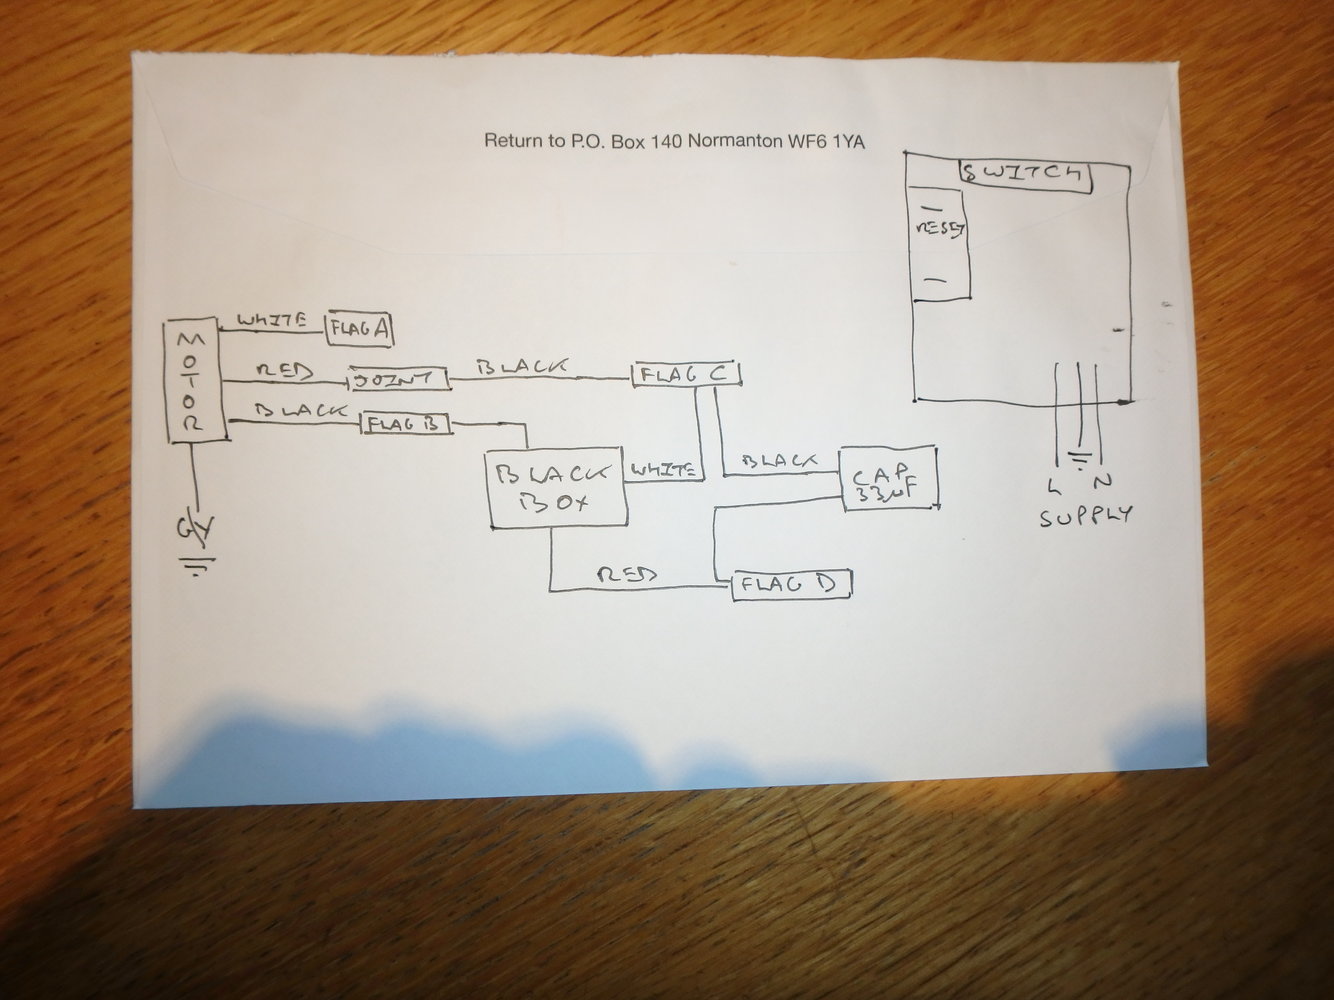 Return to P.O. Box 140 Normanton WF6 1YA
SWITCH
RESET
WHITE
FLAG A
MOTOR
RED
JOINT
BLACK
FLAG C
BLACK
FLAG B
BLACK
BOX
WHITE
BLACK
CAP
33µF
L
N
SUPPLY
GY
RED
FLAG D